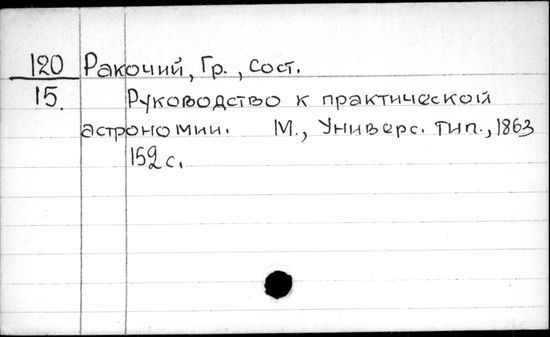 120 Ракочий, Гр., сост.
15. Руководство к практической
астрономии. М., Универс. тип., 1863
152 с.